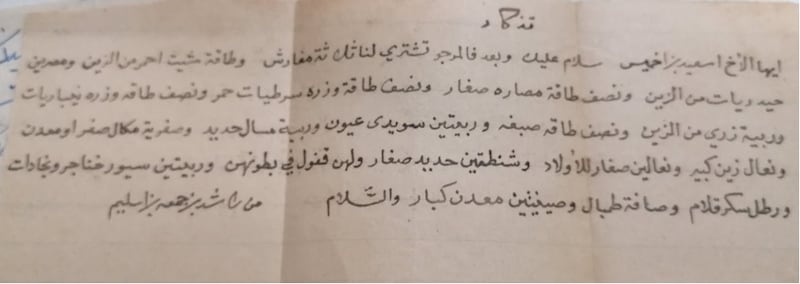 تذكار
ايها الأخ اسعيد بن اخميس سلام عليك وبعد فالمرجو تشتري لنا ثلاثة مفارش وطاقة مشيت احمر من الزين ومصرين
حيدريات من الزين ونصف طاقة مصاره صغار ونصف طاقة وزره سرطيات حمر ونصف طاقه وزره نجباريات
وربية زري من الزين ونصف طاقه صبغه وربيعتين سويدى عيون وربية مسال حديد وصفرية مكال صفر او معدن
ونعال زين كبير ونعالين صغار للأولاد وشنطتين حديد صغار ولهن قفول في بطونهن وربيعتين سيور خناجر ونجادات
ورطل سكر قلام وصافة طبال وصينيتين معدن كبار والسَّلام من راشد بن جمعه بن اسليم